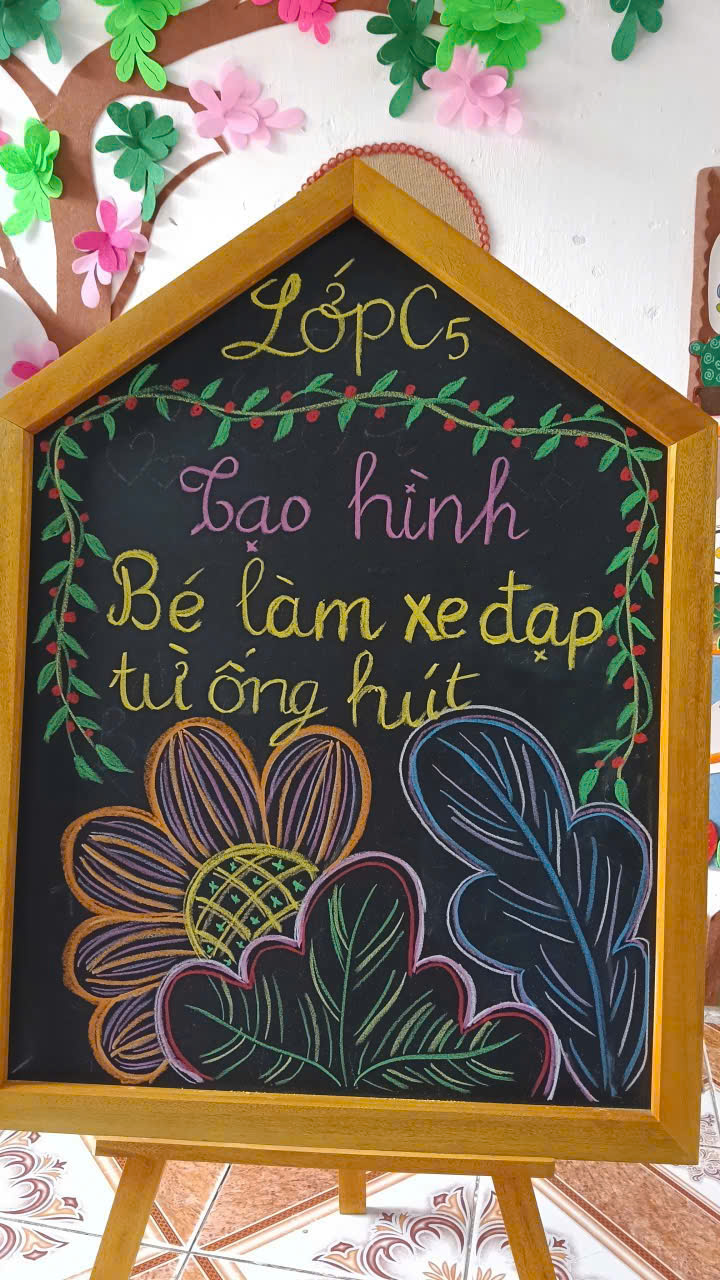 Lớp C5
Tạo hình
Bé làm xe đạp
từ ống hút